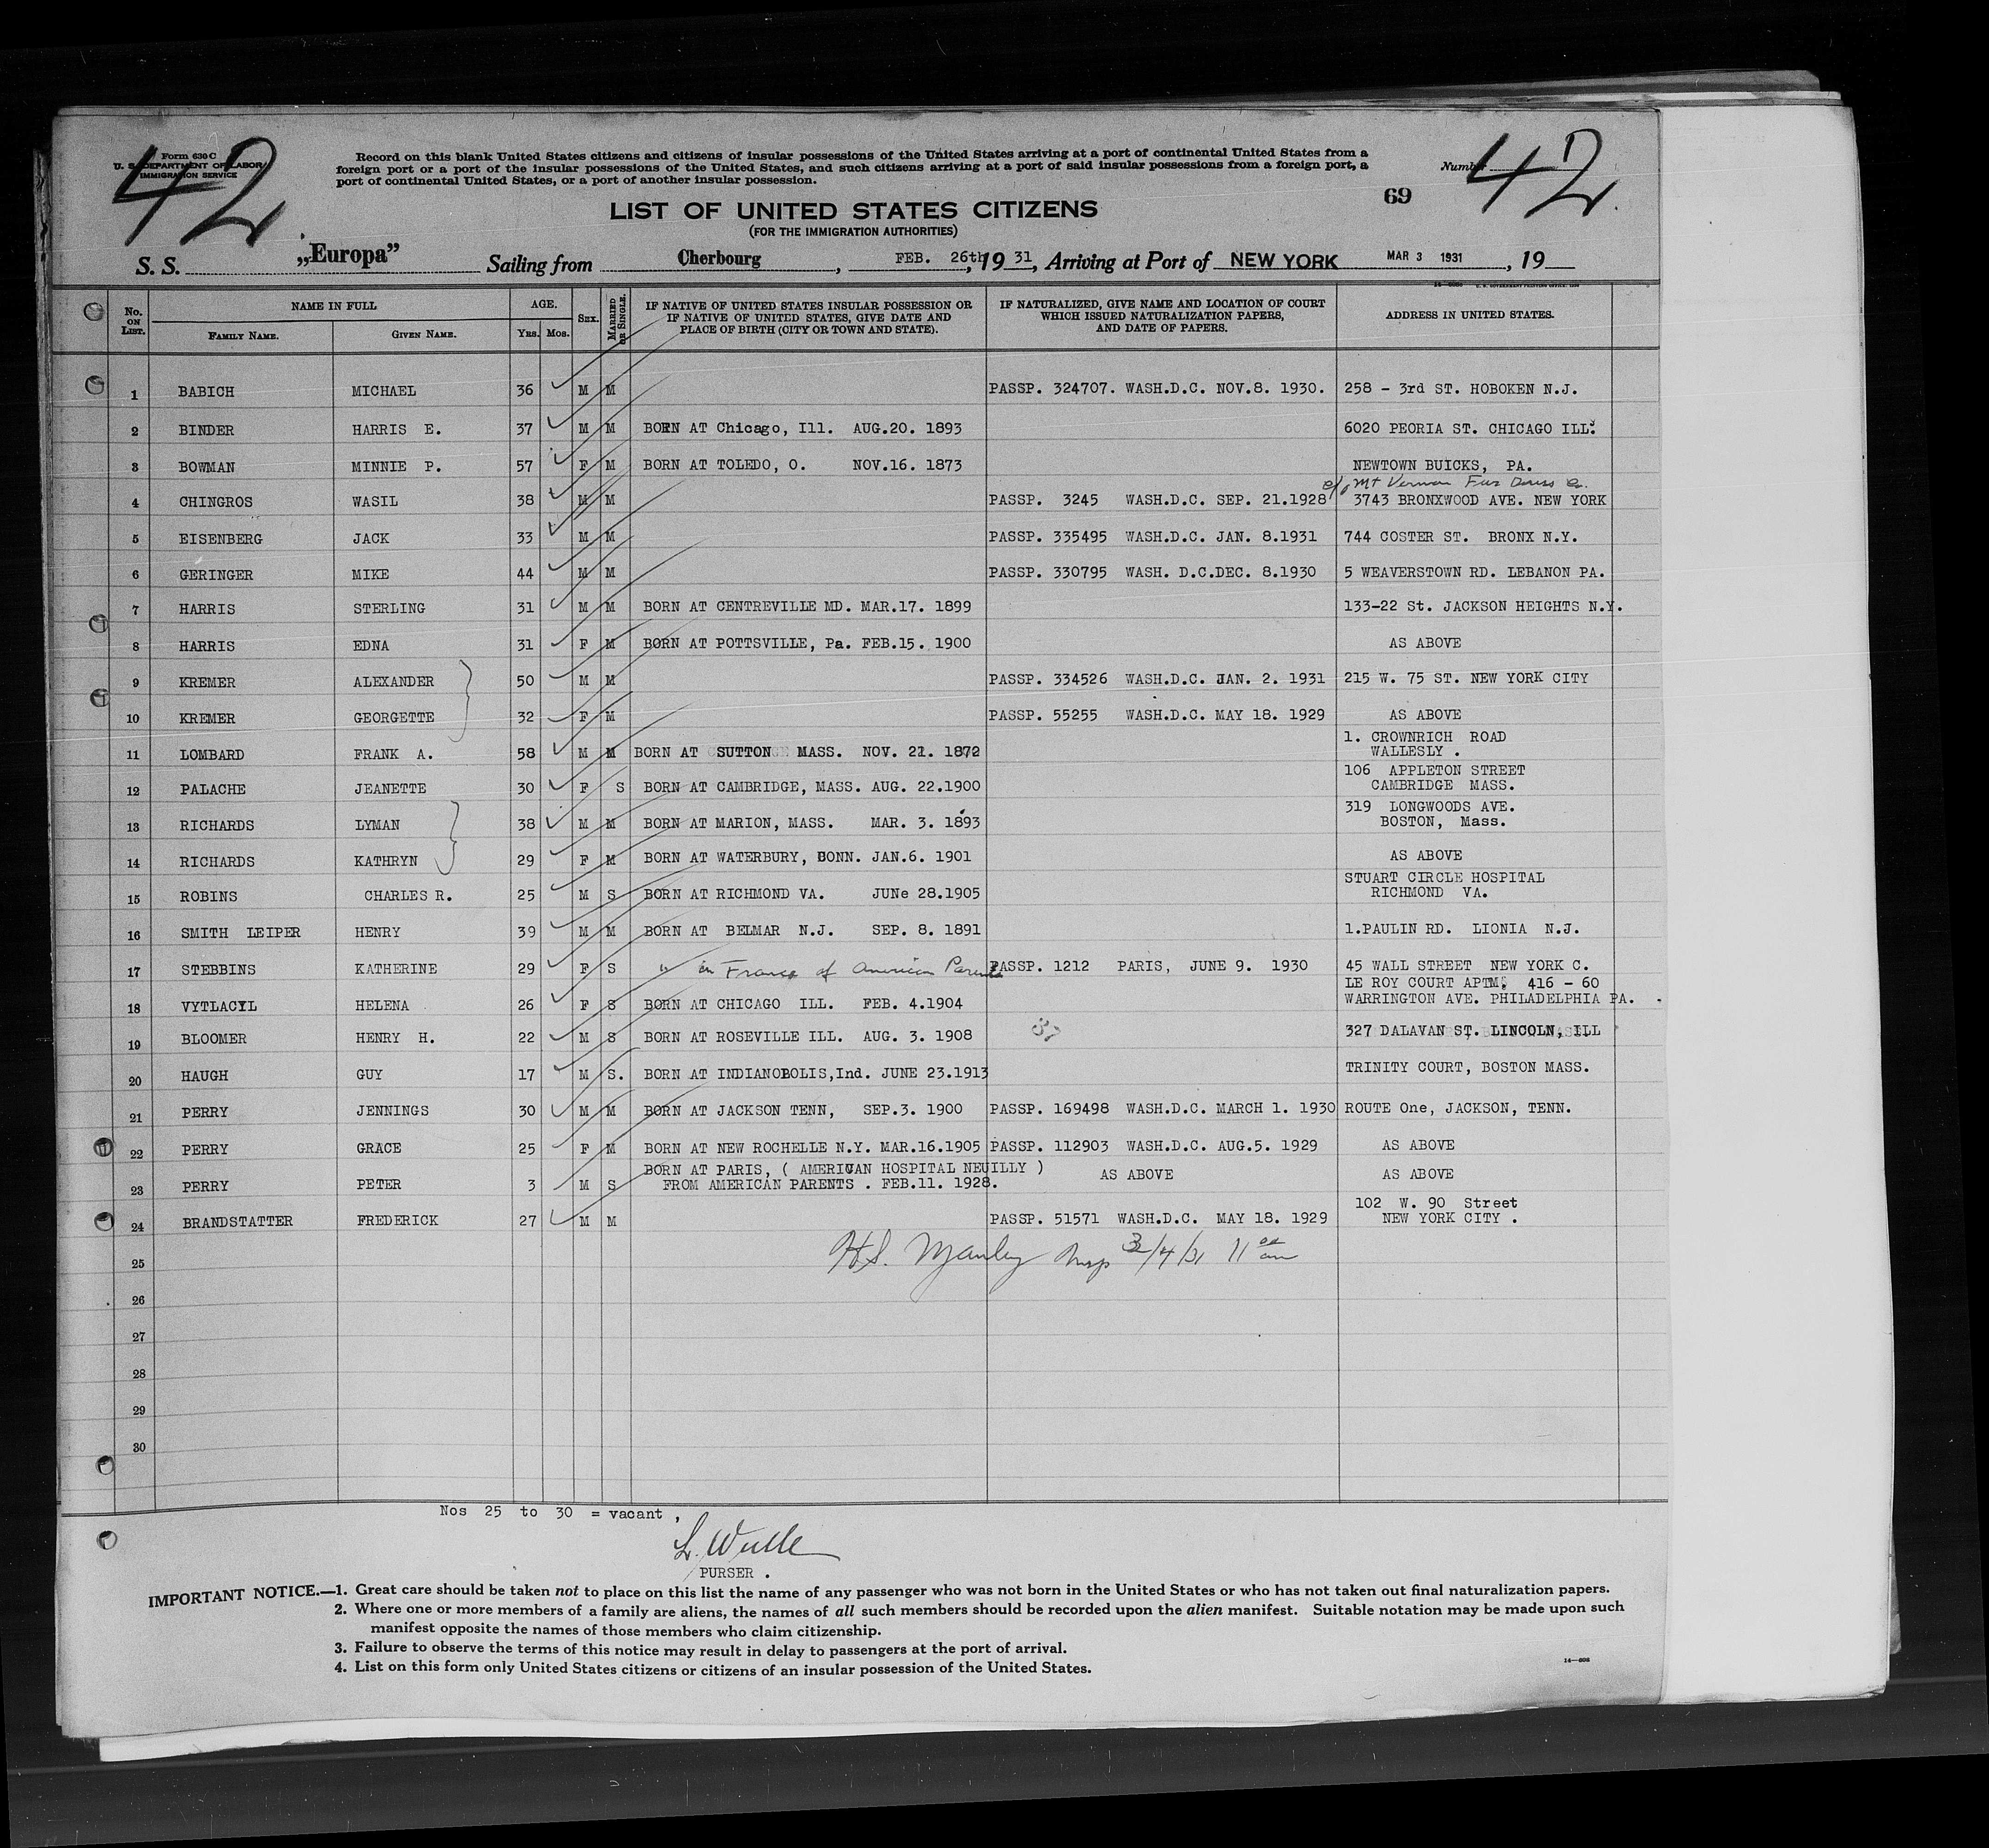 Form 630 C
U. S. DEPARTMENT OF LABOR
IMMIGRATION SERVICE
42
Record on this blank United States citizens and citizens of insular possessions of the United States arriving at a port of continental United States from a
foreign port or a port of the insular possessions of the United States, and such citizens arriving at a port of said insular possessions from a foreign port, a
port of continental United States, or a port of another insular possession.
Number
42
69
LIST OF UNITED STATES CITIZENS
(FOR THE IMMIGRATION AUTHORITIES)
S. S. „Europa” Sailing from Cherbourg, FEB. 26th, 19 31, Arriving at Port of NEW YORK MAR 3 1931, 19
No. ON LIST. NAME IN FULL AGE. SEX. MARRIED OR SINGLE. IF NATIVE OF UNITED STATES INSULAR POSSESSION OR IF NATIVE OF UNITED STATES, GIVE DATE AND PLACE OF BIRTH (CITY OR TOWN AND STATE). IF NATURALIZED, GIVE NAME AND LOCATION OF COURT WHICH ISSUED NATURALIZATION PAPERS, AND DATE OF PAPERS. ADDRESS IN UNITED STATES.
FAMILY NAME. GIVEN NAME. YRS. MOS.
1 BABICH MICHAEL 36 M M PASSP. 324707. WASH.D.C. NOV.8. 1930. 258 - 3rd ST. HOBOKEN N.J.
2 BINDER HARRIS E. 37 M M BORN AT Chicago, Ill. AUG.20. 1893 6020 PEORIA ST. CHICAGO ILL.
3 BOWMAN MINNIE P. 57 F M BORN AT TOLEDO, O. NOV.16. 1873 NEWTOWN BUICKS, PA.
c/o Mt Vernon Fur Dress Co.
4 CHINGROS WASIL 38 M M PASSP. 3245 WASH.D.C. SEP. 21.1928 3743 BRONXWOOD AVE. NEW YORK
5 EISENBERG JACK 33 M M PASSP. 335495 WASH.D.C. JAN. 8.1931 744 COSTER ST. BRONX N.Y.
6 GERINGER MIKE 44 M M PASSP. 330795 WASH. D.C.DEC. 8.1930 5 WEAVERSTOWN RD. LEBANON PA.
7 HARRIS STERLING 31 M M BORN AT CENTREVILLE MD. MAR.17. 1899 133-22 St. JACKSON HEIGHTS N.Y.
8 HARRIS EDNA 31 F M BORN AT POTTSVILLE, Pa. FEB.15. 1900 AS ABOVE
9 KREMER ALEXANDER 50 M M PASSP. 334526 WASH.D.C. JAN. 2. 1931 215 W. 75 ST. NEW YORK CITY
10 KREMER GEORGETTE 32 F M PASSP. 55255 WASH.D.C. MAY 18. 1929 AS ABOVE
11 LOMBARD FRANK A. 58 M M BORN AT SUTTON MASS. NOV. 21. 1872 1. CROWNRICH ROAD
WALLESLY .
12 PALACHE JEANETTE 30 F S BORN AT CAMBRIDGE, MASS. AUG. 22.1900 106 APPLETON STREET
CAMBRIDGE MASS.
13 RICHARDS LYMAN 38 M M BORN AT MARION, MASS. MAR. 3. 1893 319 LONGWOODS AVE.
BOSTON, Mass.
14 RICHARDS KATHRYN 29 F M BORN AT WATERBURY, CONN. JAN.6. 1901 AS ABOVE
15 ROBINS CHARLES R. 25 M S BORN AT RICHMOND VA. JUNe 28.1905 STUART CIRCLE HOSPITAL
RICHMOND VA.
16 SMITH LEIPER HENRY 39 M M BORN AT BELMAR N.J. SEP. 8. 1891 1.PAULIN RD. LIONIA N.J.
17 STEBBINS KATHERINE 29 F S " in France of American Parents PASSP. 1212 PARIS, JUNE 9. 1930 45 WALL STREET NEW YORK C.
18 VYTLACYL HELENA 26 F S BORN AT CHICAGO ILL. FEB. 4.1904 LE ROY COURT APTM; 416 - 60
WARRINGTON AVE. PHILADELPHIA PA.
19 BLOOMER HENRY H. 22 M S BORN AT ROSEVILLE ILL. AUG. 3. 1908 327 DALAVAN ST. LINCOLN, ILL
20 HAUGH GUY 17 M S. BORN AT INDIANOPOLIS,Ind. JUNE 23.1913 TRINITY COURT, BOSTON MASS.
21 PERRY JENNINGS 30 M M BORN AT JACKSON TENN, SEP.3. 1900 PASSP. 169498 WASH.D.C. MARCH 1. 1930 ROUTE One, JACKSON, TENN.
22 PERRY GRACE 25 F M BORN AT NEW ROCHELLE N.Y. MAR.16.1905 PASSP. 112903 WASH.D.C. AUG.5. 1929 AS ABOVE
23 PERRY PETER 3 M S BORN AT PARIS, ( AMERICAN HOSPITAL NEUILLY ) AS ABOVE AS ABOVE
FROM AMERICAN PARENTS . FEB.11. 1928.
24 BRANDSTATTER FREDERICK 27 M M PASSP. 51571 WASH.D.C. MAY 18. 1929 102 W. 90 Street
NEW YORK CITY .
25 H.S. Manley Insp 3/4/31 11 00 am
26
27
28
29
30
Nos 25 to 30 = vacant ,
L. Wulle
PURSER .
IMPORTANT NOTICE.—1. Great care should be taken not to place on this list the name of any passenger who was not born in the United States or who has not taken out final naturalization papers.
2. Where one or more members of a family are aliens, the names of all such members should be recorded upon the alien manifest. Suitable notation may be made upon such
manifest opposite the names of those members who claim citizenship.
3. Failure to observe the terms of this notice may result in delay to passengers at the port of arrival.
4. List on this form only United States citizens or citizens of an insular possession of the United States.